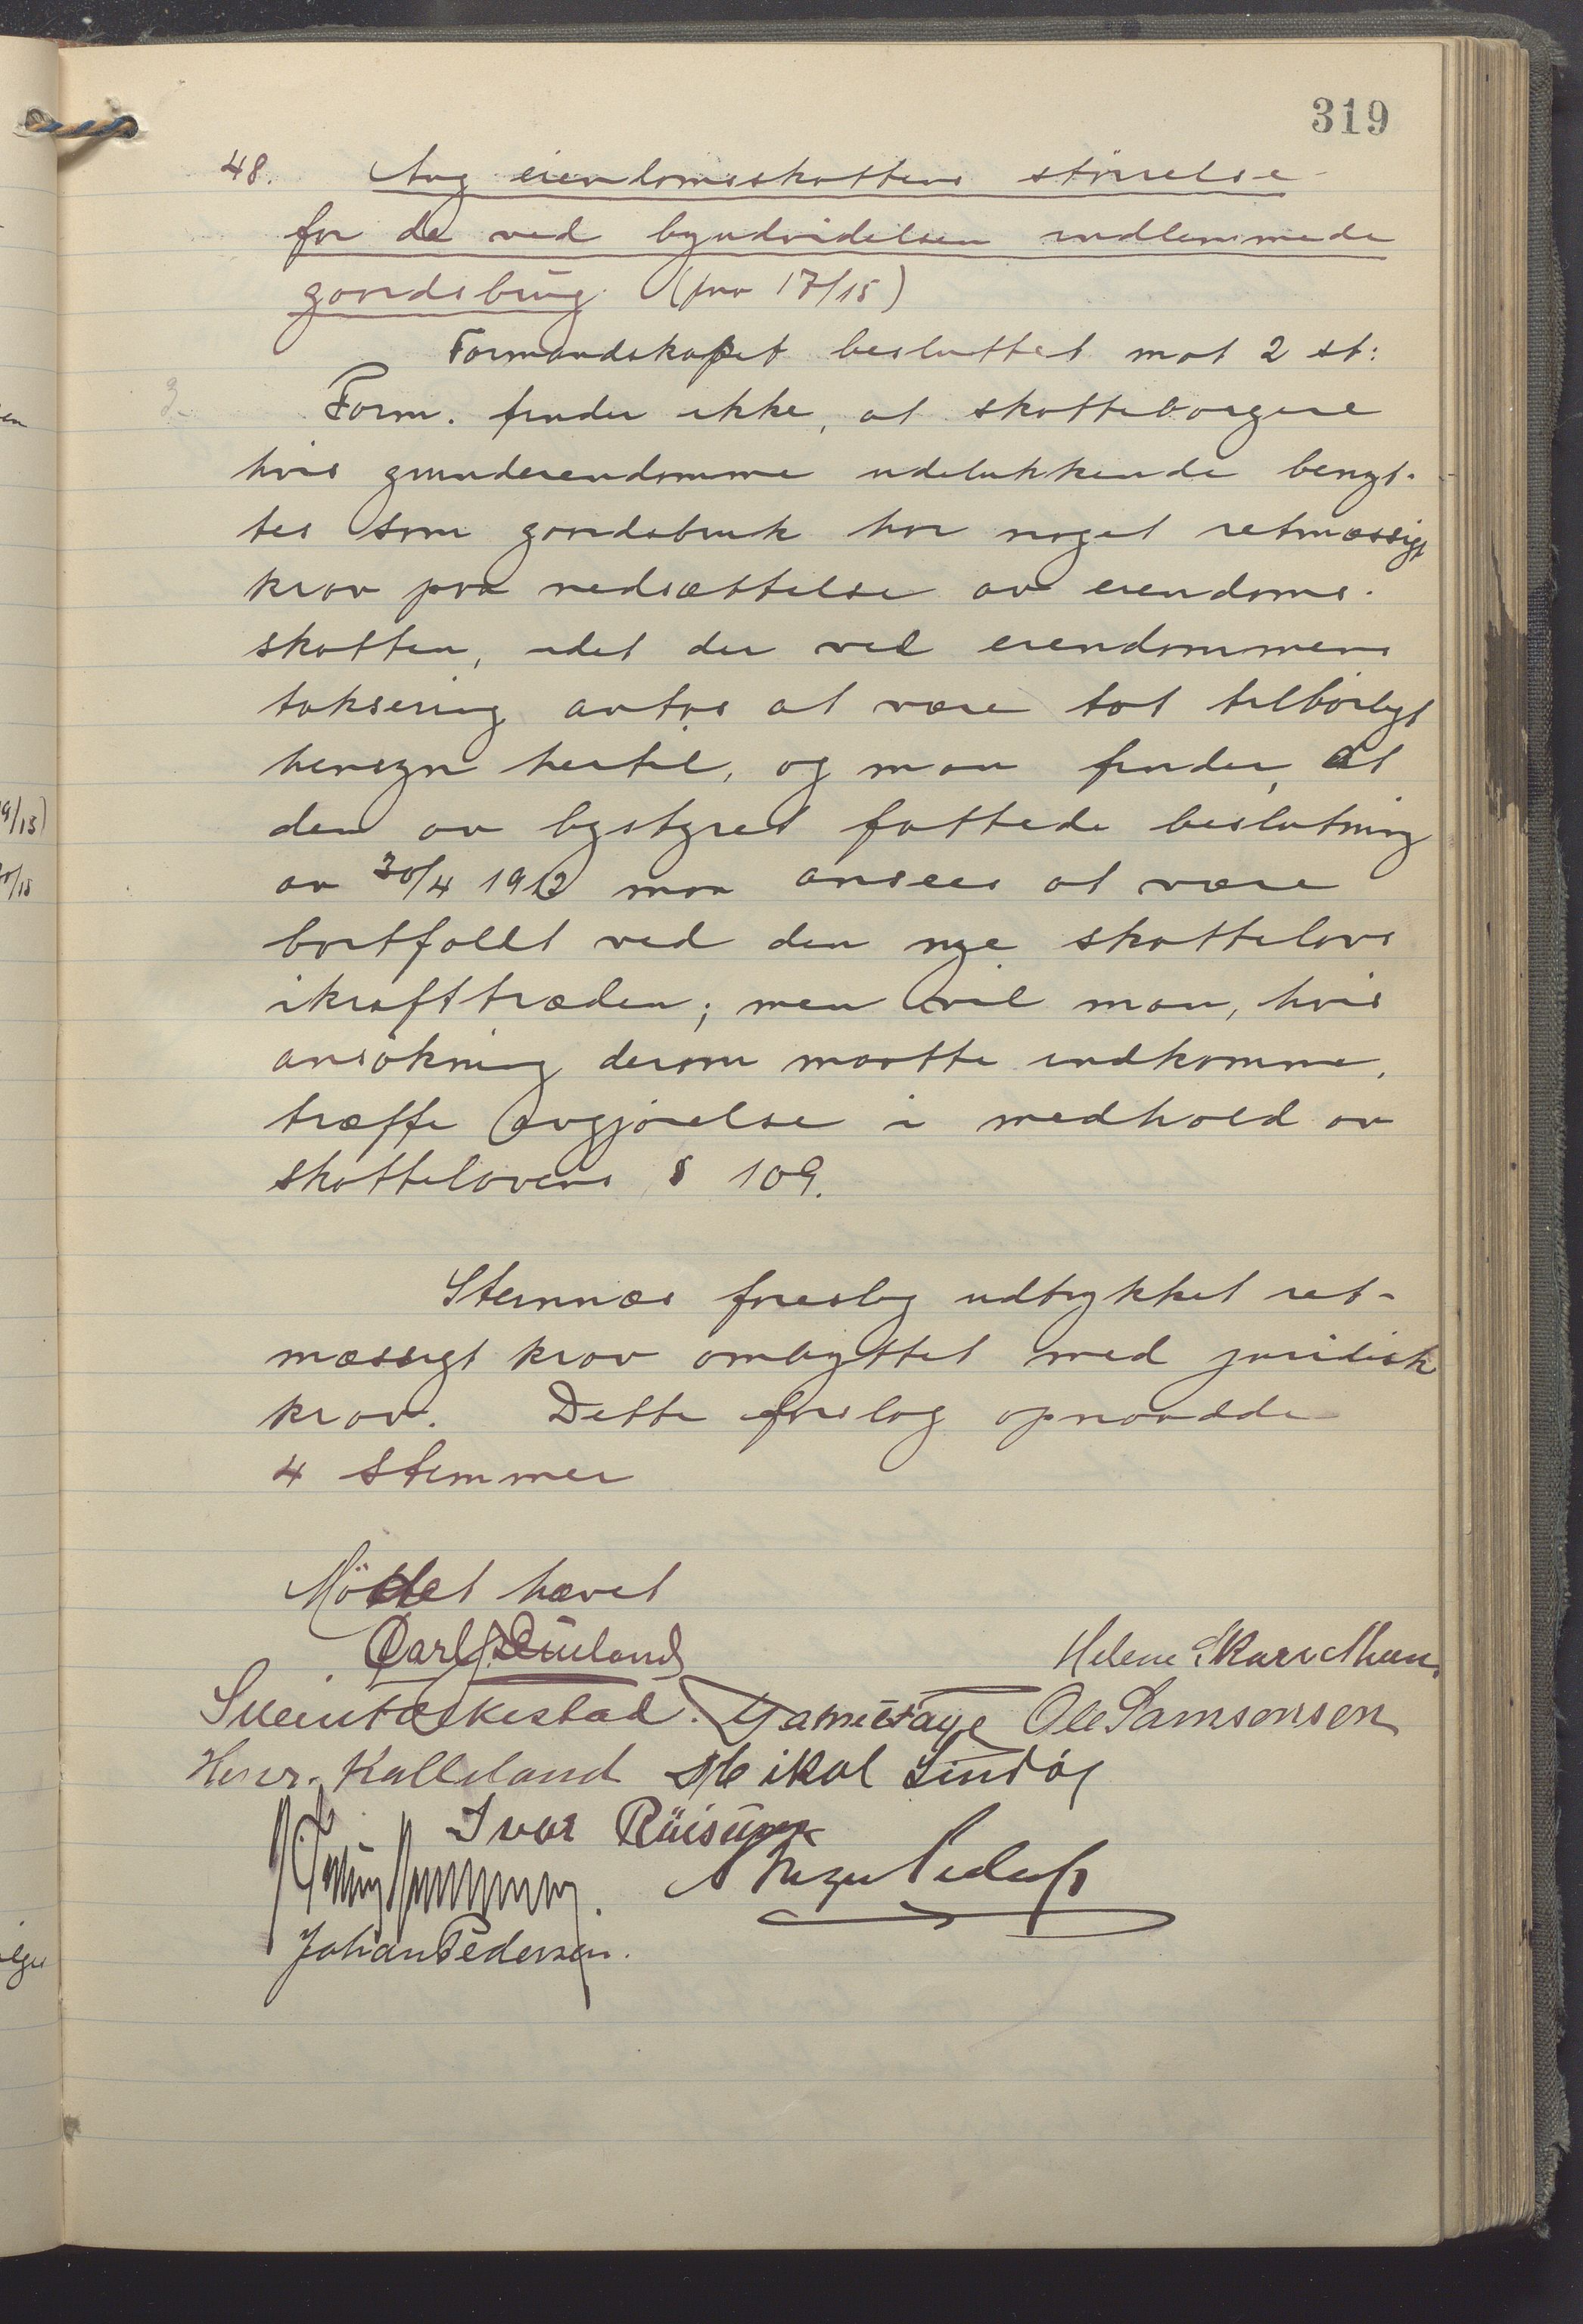 319
48. Ang eiendomsskattens størrelse
for de ved byudvidelsen indlemmede
gaardsbrug. (jnr 17/15)
Formandskapet besluttet mot 2 st:
3. Form. finder ikke, at skatteborgere
hvis grundeiendomme udelukkende benyt-
tes som gaardsbruk har noget retmæssigt
krav paa nedsættelse av eiendoms-
skatten, idet der ved eiendommens
taksering antas at være tat tilbørligt
hensyn hertil, og man finder, at
den av bystyret fattede beslutning
av 30/4 1912 maa ansees at være
bortfaldt ved den nye skattelovs
ikrafttræden; men vil man, hvis
ansökning derom maatte indkomme,
træffe avgjørelse i medhold av
skattelovens § 109.
Steinnæs foreslog udtrykket ret-
mæssigt krav ombyttet med juridisk
krav. Dette forslag opnaadde
4 stemmer
Mödet hævet
Helene Skare
Svein Ole Samsonsen
Henr. Kalleland Mikal Lindøy
Ivar
Johan Pedersen.